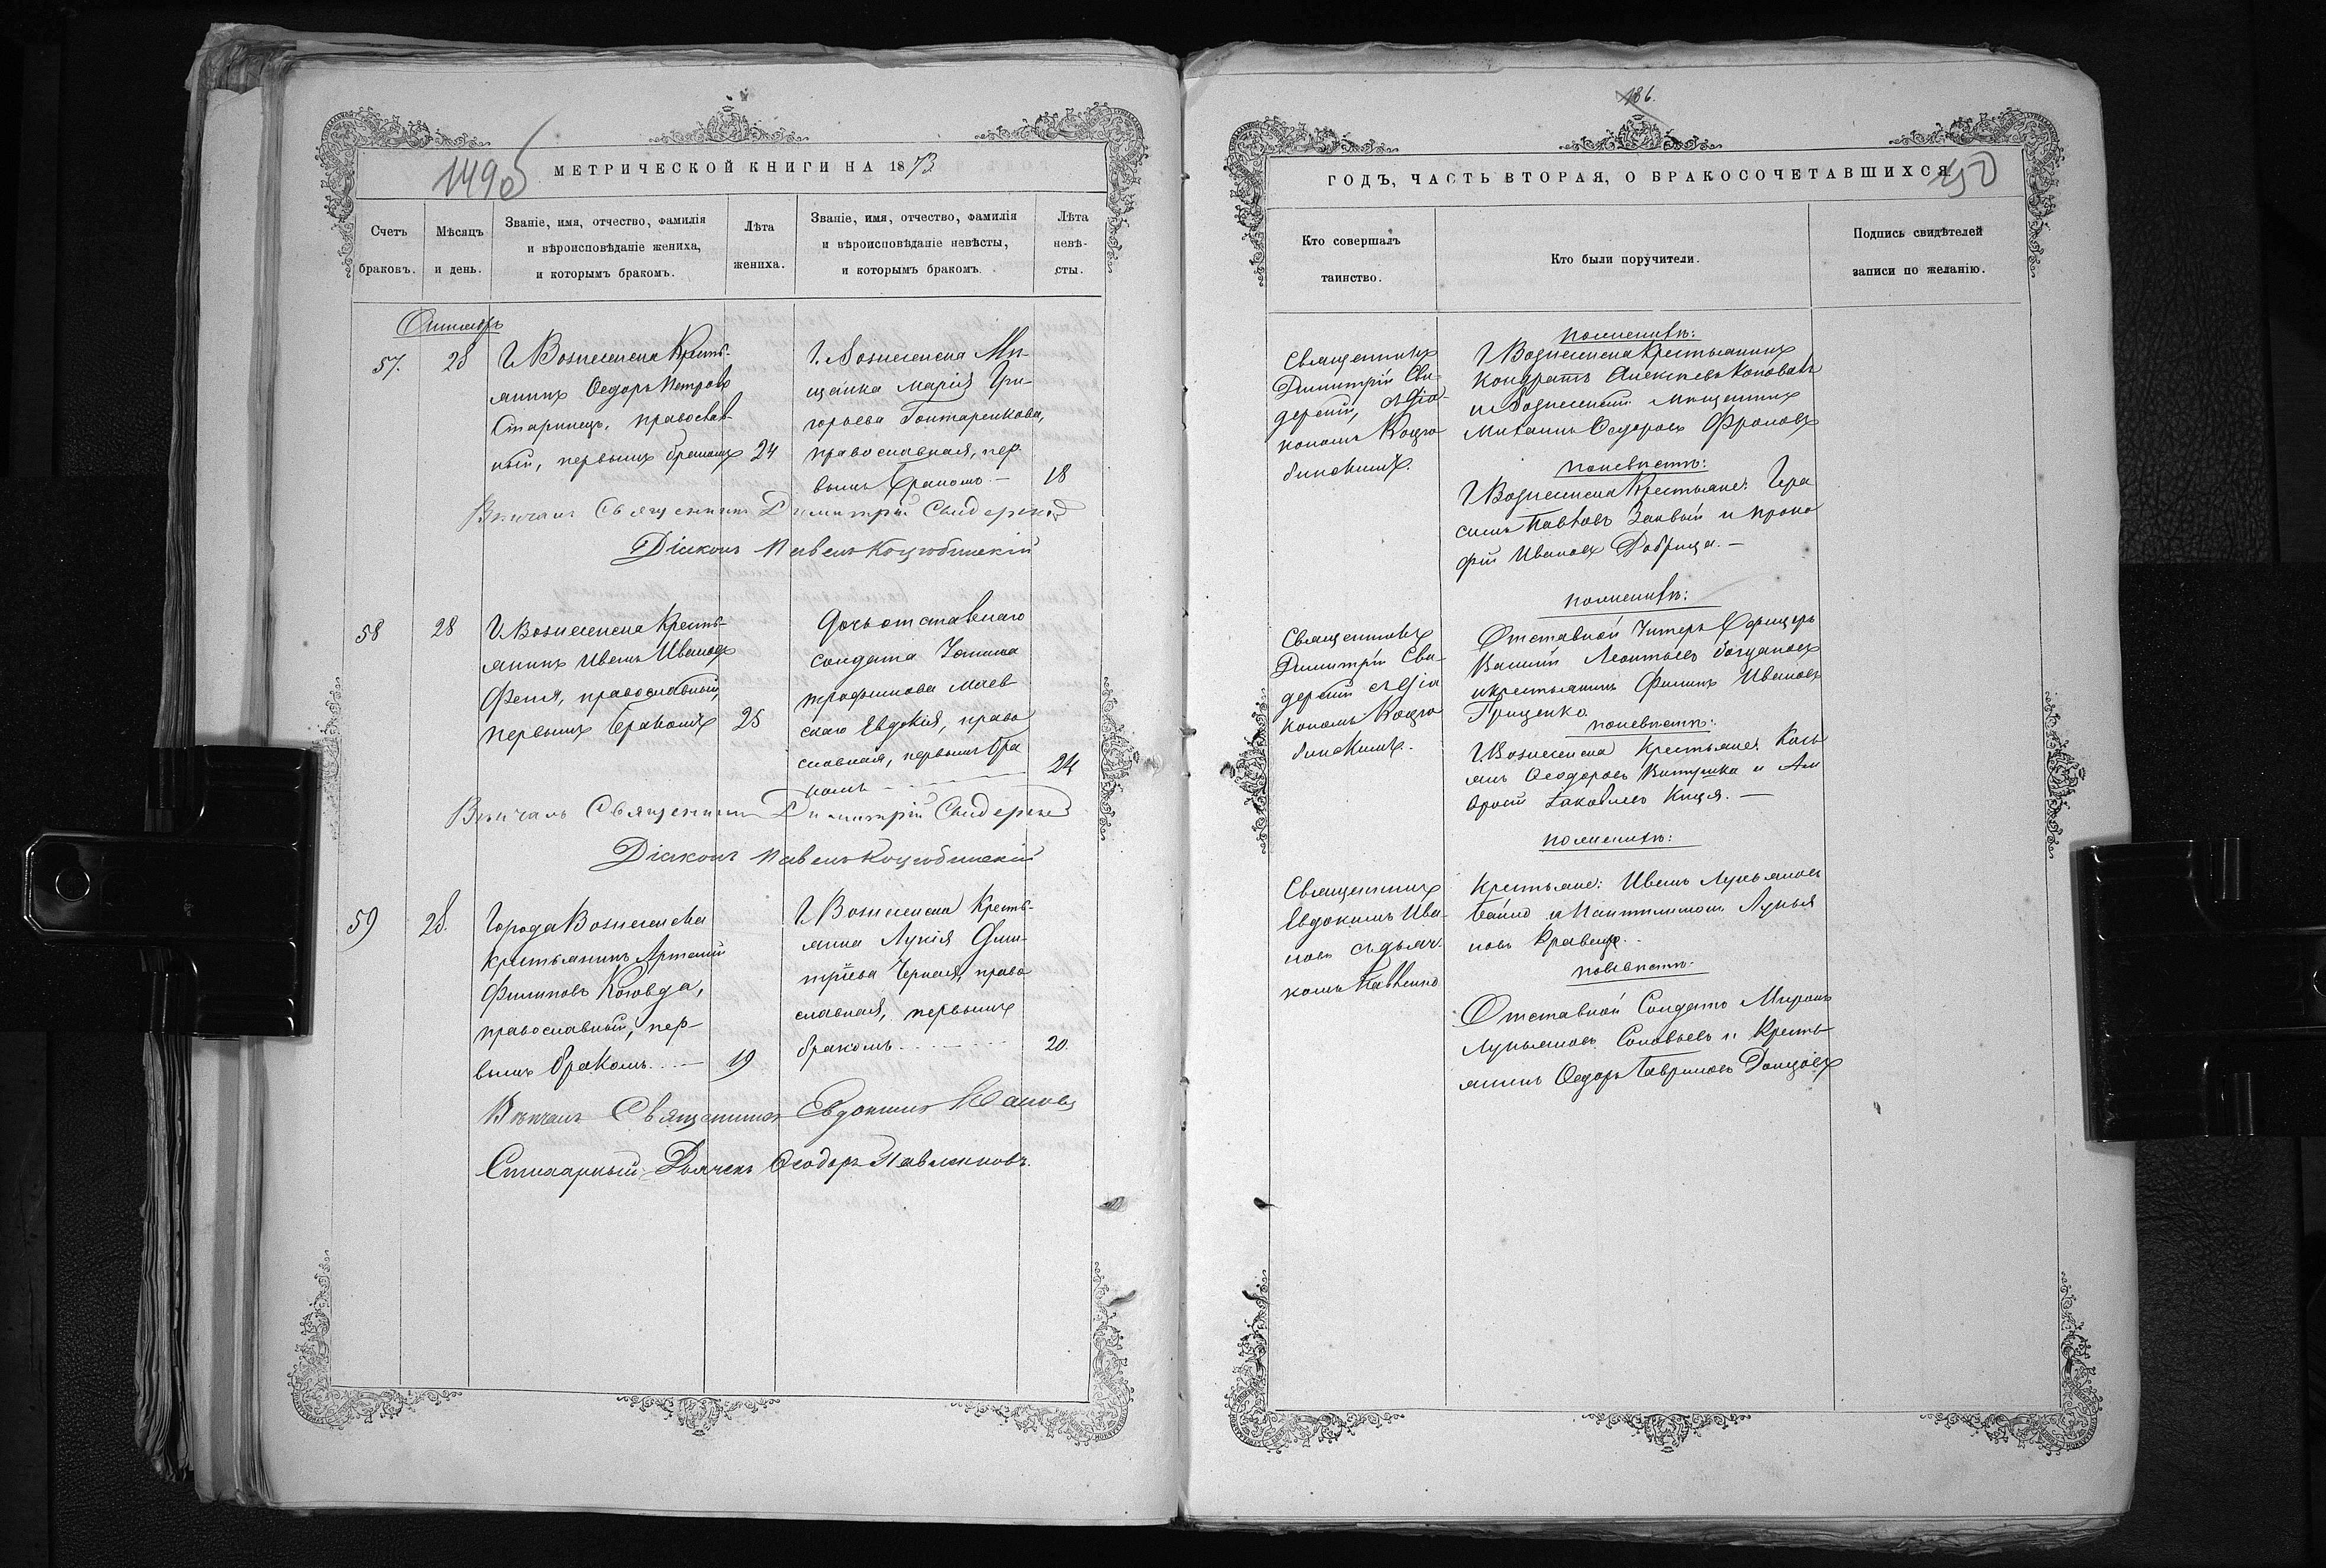 149об
МЕТРИЧЕСКОЙ КНИГИ НА 1873
Счетъ
браковъ.
Мѣсяцъ
и день.
Званіе, имя, отчество, фамилія
и вѣроисповѣданіе жениха,
и которымъ бракомъ.
Лѣта
жениха.
Званіе, имя, отчество, фамилія
и вѣроисповѣданіе невѣсты,
и которымъ бракомъ.
Лѣта
невѣ-
сты.
57.
28
Г. Вознесенска Кресть-
янинъ Ѳедоръ Петровъ
Старинецъ, православ-
ный, первымъ бракомъ
24
Г. Вознесенска Мѣ-
щанка Марія Гри-
горьева Гонтаренкова,
православная, пер
вымъ бракомъ –
18
Вѣнчалъ Священникъ Димитрій Свидерскій
Діаконъ Павелъ Коцюбинскій
58
28
Г. Вознесенска Кресть-
янинъ Иванъ Ивановъ
православный,
первымъ бракомъ
25
Дочь отставнаго
солдата
Трофимова Маев
скаго Евдокія, право
славная, первымъ бра
комъ
24
Вѣнчалъ Священникъ Димитрій Свидерскій
Діаконъ Павелъ Коцюбинскій
59
28.
Города Вознесенска
крестьянинъ Артемій
Филиповъ
православный, пер-
вымъ бракомъ. . –
19
Г. Вознесенска Кресть-
янка Лукія Дми-
тріева Черная, право
славная, первымъ
бракомъ
20.
Вѣнчалъ Священникъ Евдокимъ Ивановъ
Стихарный Дьячекъ Ѳеодоръ Павленковъ.
186.
150
ГОДЪ, ЧАСТЬ ВТОРАЯ, О БРАКОСОЧЕТАВШИХСЯ
Кто совершалъ
таинство.
Кто были поручители.
Подпись свидѣтелей
записи по желанію.
Священникъ
Димитрій Сви-
дерскій, съ діа-
кономъ Коцю
бинскимъ.
по женихѣ:
Г. Вознесенска Крестьянинъ
Кондратъ Алексѣевъ Коновалъ
и Вознесенскій Мѣщанинъ
Михаилъ Ѳедоровъ Фроловъ
по невѣстѣ:
Г. Вознесенска Крестьяне: Гера
симъ Павловъ и Проко
фій Ивановъ Добрица. –
Священникъ
Димитрій Сви-
дерскій съ діа
кономъ Коцю
бинскимъ.
по женихѣ:
Отставной Унтеръ Офицеръ
Василій Леонтьевъ Богдановъ
и крестьянинъ Филипъ Ивановъ
Грищенко.
по невѣстѣ:
Г. Вознесенска Крестьяне: Козь
ма Ѳеодоровъ и Ам
вросій Іаковлевъ Кицея. –
Священникъ
Евдокимъ Ива-
новъ съ дьяч.
комъ Павленко
по женихѣ:
Крестьяне: Иванъ Лукьяновъ
и Пантилимонъ Лукья
новъ Кравецъ.
по невѣстѣ:
Отставной Солдатъ Миронъ
Лукьяновъ Соловьевъ и Кресть-
янинъ Ѳедоръ Гавриловъ Донцовъ